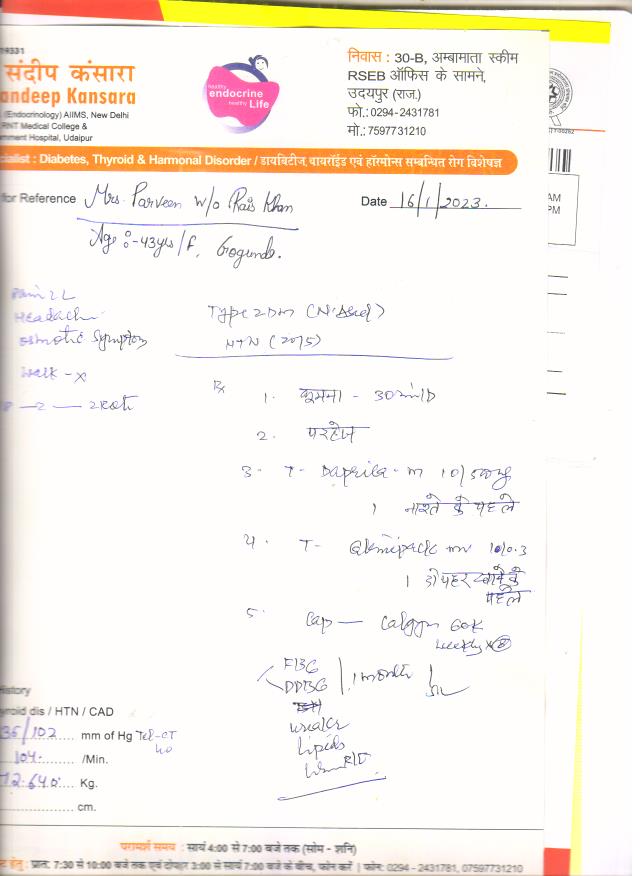 19331
संदीप कंसारा
andeep Kansara
(Endocrinology) AIIMS, New Delhi
RNT Medical College &
rnment Hospital, Udaipur
healthy
endocrine
healthy Life
निवास : 30-B, अम्बामाता स्कीम
RSEB ऑफिस के सामने,
उदयपुर (राज.)
फो.:0294-2431781
मो.: 7597731210
cialist : Diabetes, Thyroid & Harmonal Disorder / डायबिटीज, थायरॉईड एवं हॉरमोन्स सम्बन्धित रोग विशेषज्ञ
AM
PM
for Reference Mrs. Parveen w/o Rais Khan
Date 16/1/2023.
Age :- 43yrs/F, Gogunda.
Pain LL
Headache
osmotic symptom
walk - x
2
Type 2 DM
HTN (2015)
Rx
1. घूमना - 30 min/D
2. परहेज
3. T- Daprila-M 10/500mg
1 नाश्ते के पहले
4. T- mv 1010.3
1 दोपहर खाने के
पहले
5. Cap — 60K
weekly x 8
FBG
1 month
Lipids
R/D
History
yroid dis / HTN / CAD
36/102 mm of Hg Tel-CT
40
104. /Min.
72.640. Kg.
cm.
परामर्श समय : सायं 4:00 से 7:00 बजे तक (सोम - शनि)
हेतु : प्रात: 7:30 से 10:00 बजे तक एवं दोपहर 3:00 से सायं 7:00 बजे के बीच, फोन करें | फोन: 0294 - 2431781, 07597731210